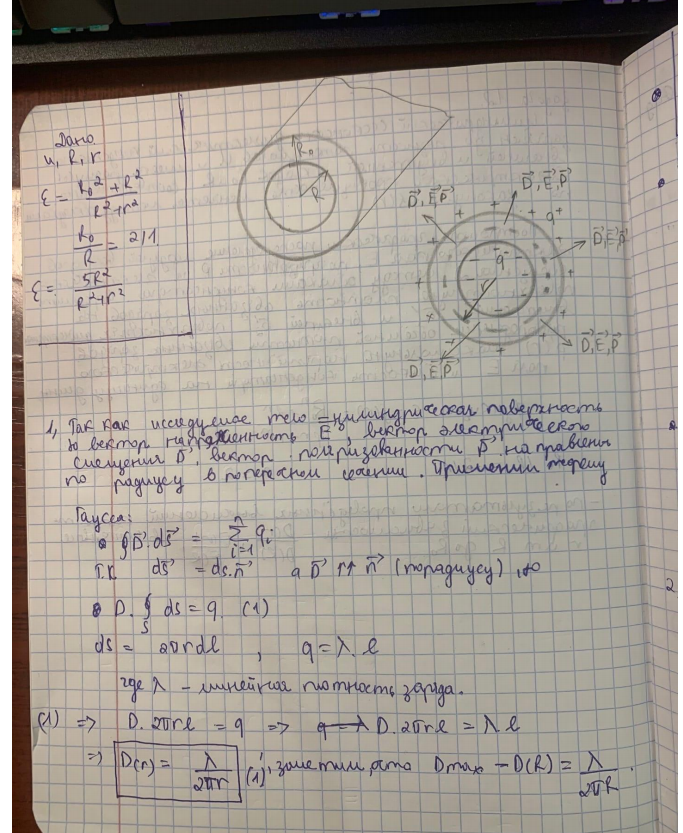 Дано
u, R, r
ε = (R₀² + R²)/(R² + r²)
R₀/R = 2/1
ε = 5R²/(R² + r²)
R₀
R
D⃗, E⃗, P⃗
D⃗, E⃗, P⃗
q⁺
D⃗, E⃗, P⃗
q⁻
r
D⃗, E⃗, P⃗
D⃗, E⃗, P⃗
1, Так как исследуемое тело – цилиндрическая поверхность
то вектор напряженность E⃗, вектор электрического
смещения D⃗, вектор поляризованности P⃗ направлены
по радиусу в поперечном сечении. Применим теорему
Гаусса:
• ∮D⃗·ds⃗ = Σⁿᵢ₌₁ qᵢ
т.к ds⃗ = ds.n⃗ а D⃗ ↑↑ n⃗ (порадиусу), то
• D.∮ₛ ds = q. (1)
ds = 2πrdl , q = λ. l
где λ – линейная плотность заряда.
(1) => D. 2πrl = q => D. 2πrl = λ l
=> D(r) = λ/2πr (1)', заметим, что Dmax = D(R) = λ/2πR.
2